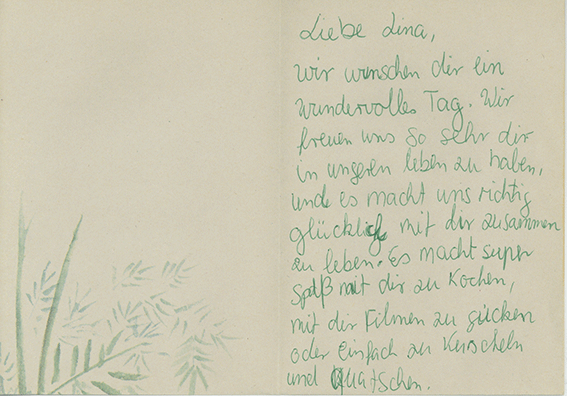 Liebe Lina,
wir wunschen dir ein
wundervolles Tag. Wir
freuen uns so sehr dir
in unseren leben zu haben,
und es macht uns richtig
glücklich mit dir zusammen
zu leben. Es macht super
Spaß mit dir zu Kochen,
mit dir Filmen zu gücken
oder einfach zu Kuscheln
und Quatschen.